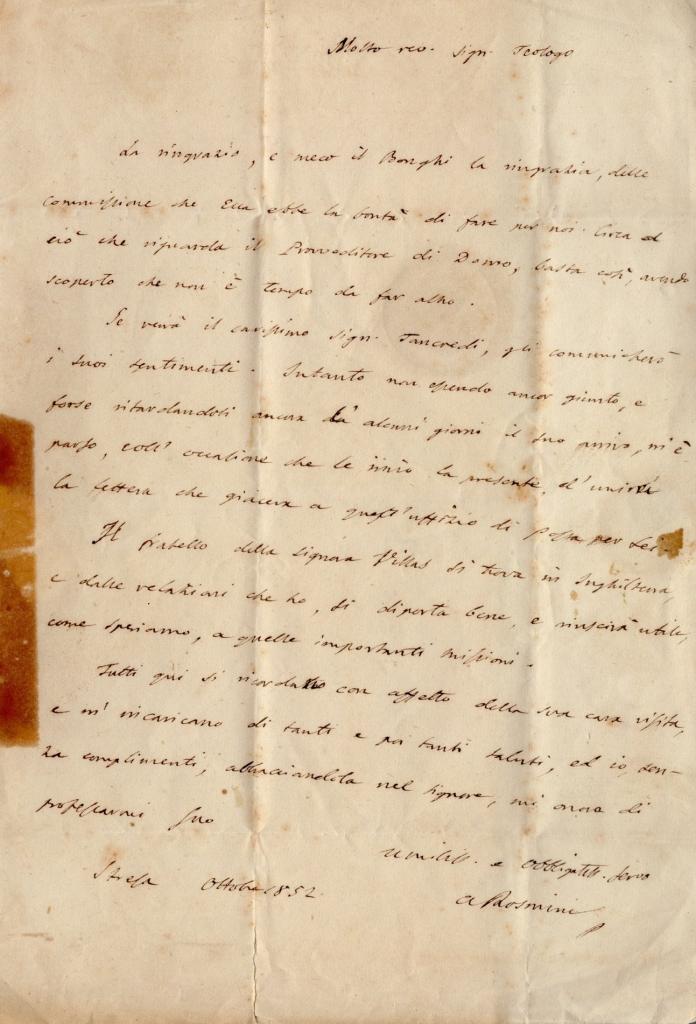 Molto rev. Sign. Teologo
La ringrazio, e meco il Bonghi la ringrazia, delle
commissione che Ella ebbe la bontà di fare per noi. Circa a
ciò che riguarda il Proveditore di Duomo, basta così, avendo
scoperto che non è tempo da far altro.
Se verrà il carissimo Sign. Tancredi, gli comunicherò
i suoi sentimenti. Intanto non essendo ancor giunto, e
forse ritardandosi ancora alcuni giorni il suo arrivo, m'è
parso, coll' occasione che le invio la presente, d'unirvi
la lettera che giaceva a quest'uffizio di Posta per Lei.
Il fratello della Signora Villas si trova in Inghilterra,
e dalle relazioni che ho, si diporta bene, e riuscirà utile,
come speriamo, a quelle importanti missioni.
Tutti qui si ricordano con affetto della sua cara visita,
e m' incaricano di tanti e poi tanti saluti, ed io, sen-
za complimenti, abbracciandola nel Signore, mi onoro di
professarmi Suo
umiliss. e obbligatiss. servo
Stresa Ottobre 1852.
A Rosmini